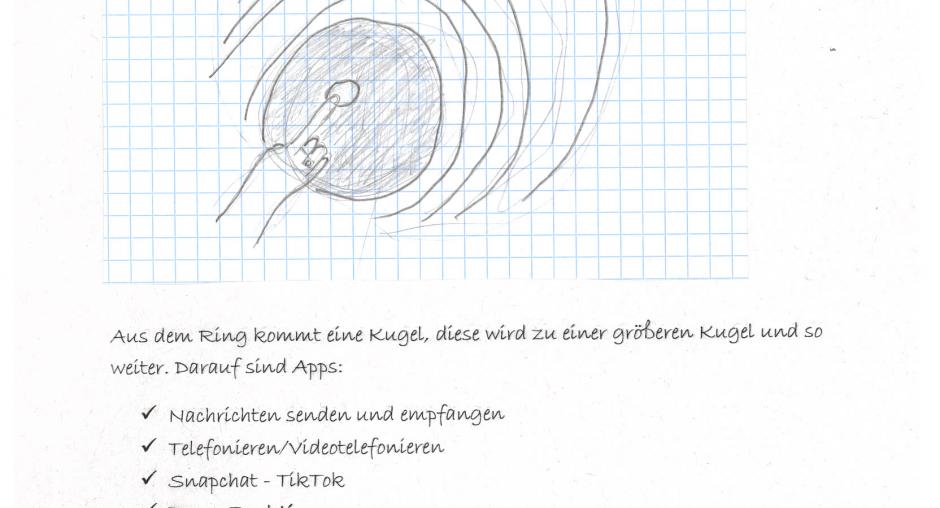 Aus dem Ring kommt eine Kugel, diese wird zu einer größeren Kugel und so
weiter. Darauf sind Apps:
✓ Nachrichten senden und empfangen
✓ Telefonieren/Videotelefonieren
✓ Snapchat - TikTok